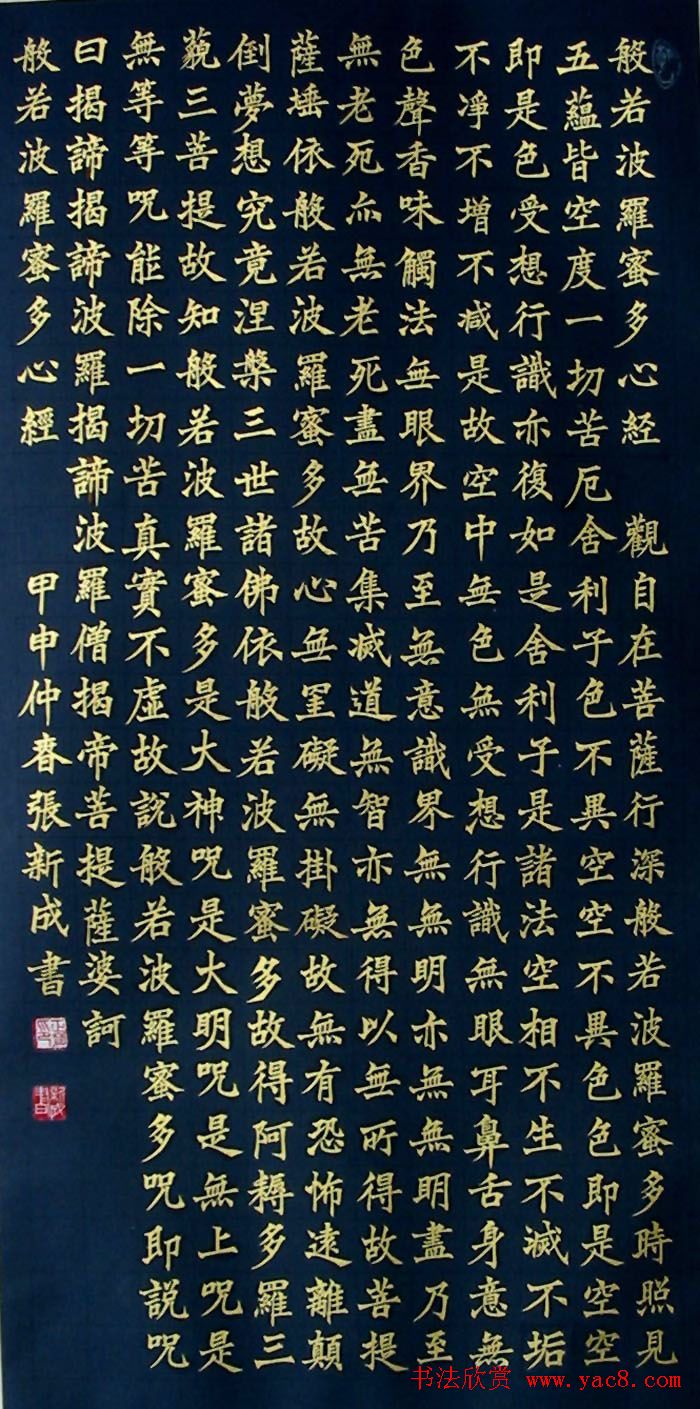 般若波羅蜜多心経 觀自在菩薩行深般若波羅蜜多時照見
五蘊皆空度一切苦厄舍利子色不異空空不異色色即是空空
即是色受想行識亦復如是舍利子是諸法空相不生不滅不垢
不淨不增不減是故空中無色無受想行識無眼耳鼻舌身意無
色聲香味觸法無眼界乃至無意識界無無明亦無無明盡乃至
無老死亦無老死盡無苦集滅道無智亦無得以無所得故菩提
薩埵依般若波羅蜜多故心無罣礙無掛礙故無有恐怖遠離顛
倒夢想究竟涅槃三世諸佛依般若波羅蜜多故得阿耨多羅三
藐三菩提故知般若波羅蜜多是大神呪是大明呪是無上呪是
無等等呪能除一切苦真實不虛故説般若波羅蜜多呪即説呪
曰揭諦揭諦波羅揭諦波羅僧揭帝菩提薩婆訶
般若波羅蜜多心經 甲申仲春張新成書
书法欣赏 www.yac8.com